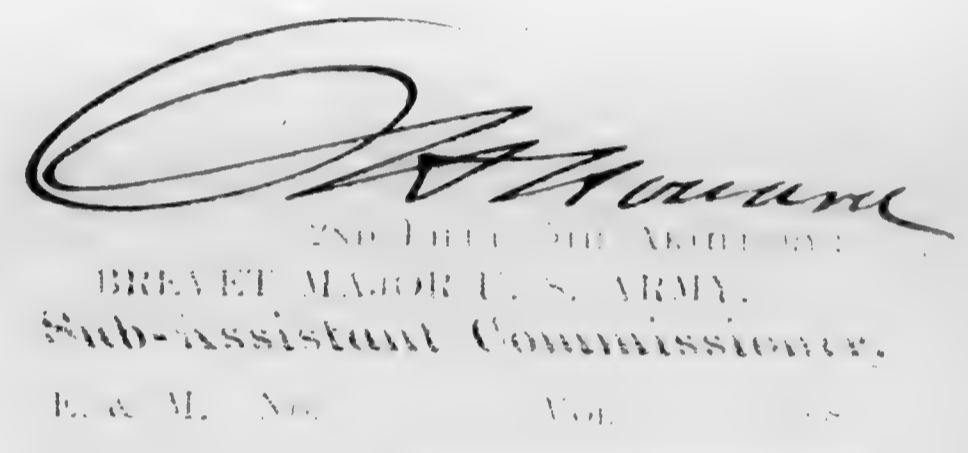 Howard
2ND LIEUT. 5TH ARTILLERY
BREVET MAJOR U. S. ARMY.
Sub-Assistant Commissioner.
E. & M. No. Vol.